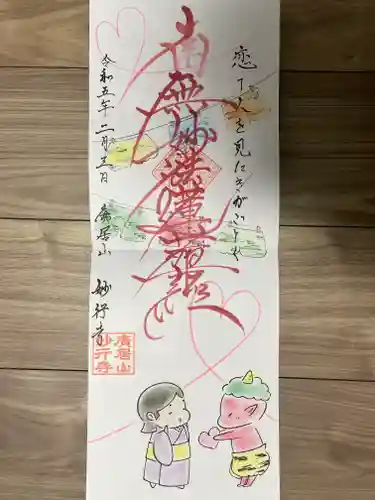 恋人を見にきがごとや
南無妙法蓮華経
令和五年二月三日
廣居山 妙行寺
廣居山
妙行寺